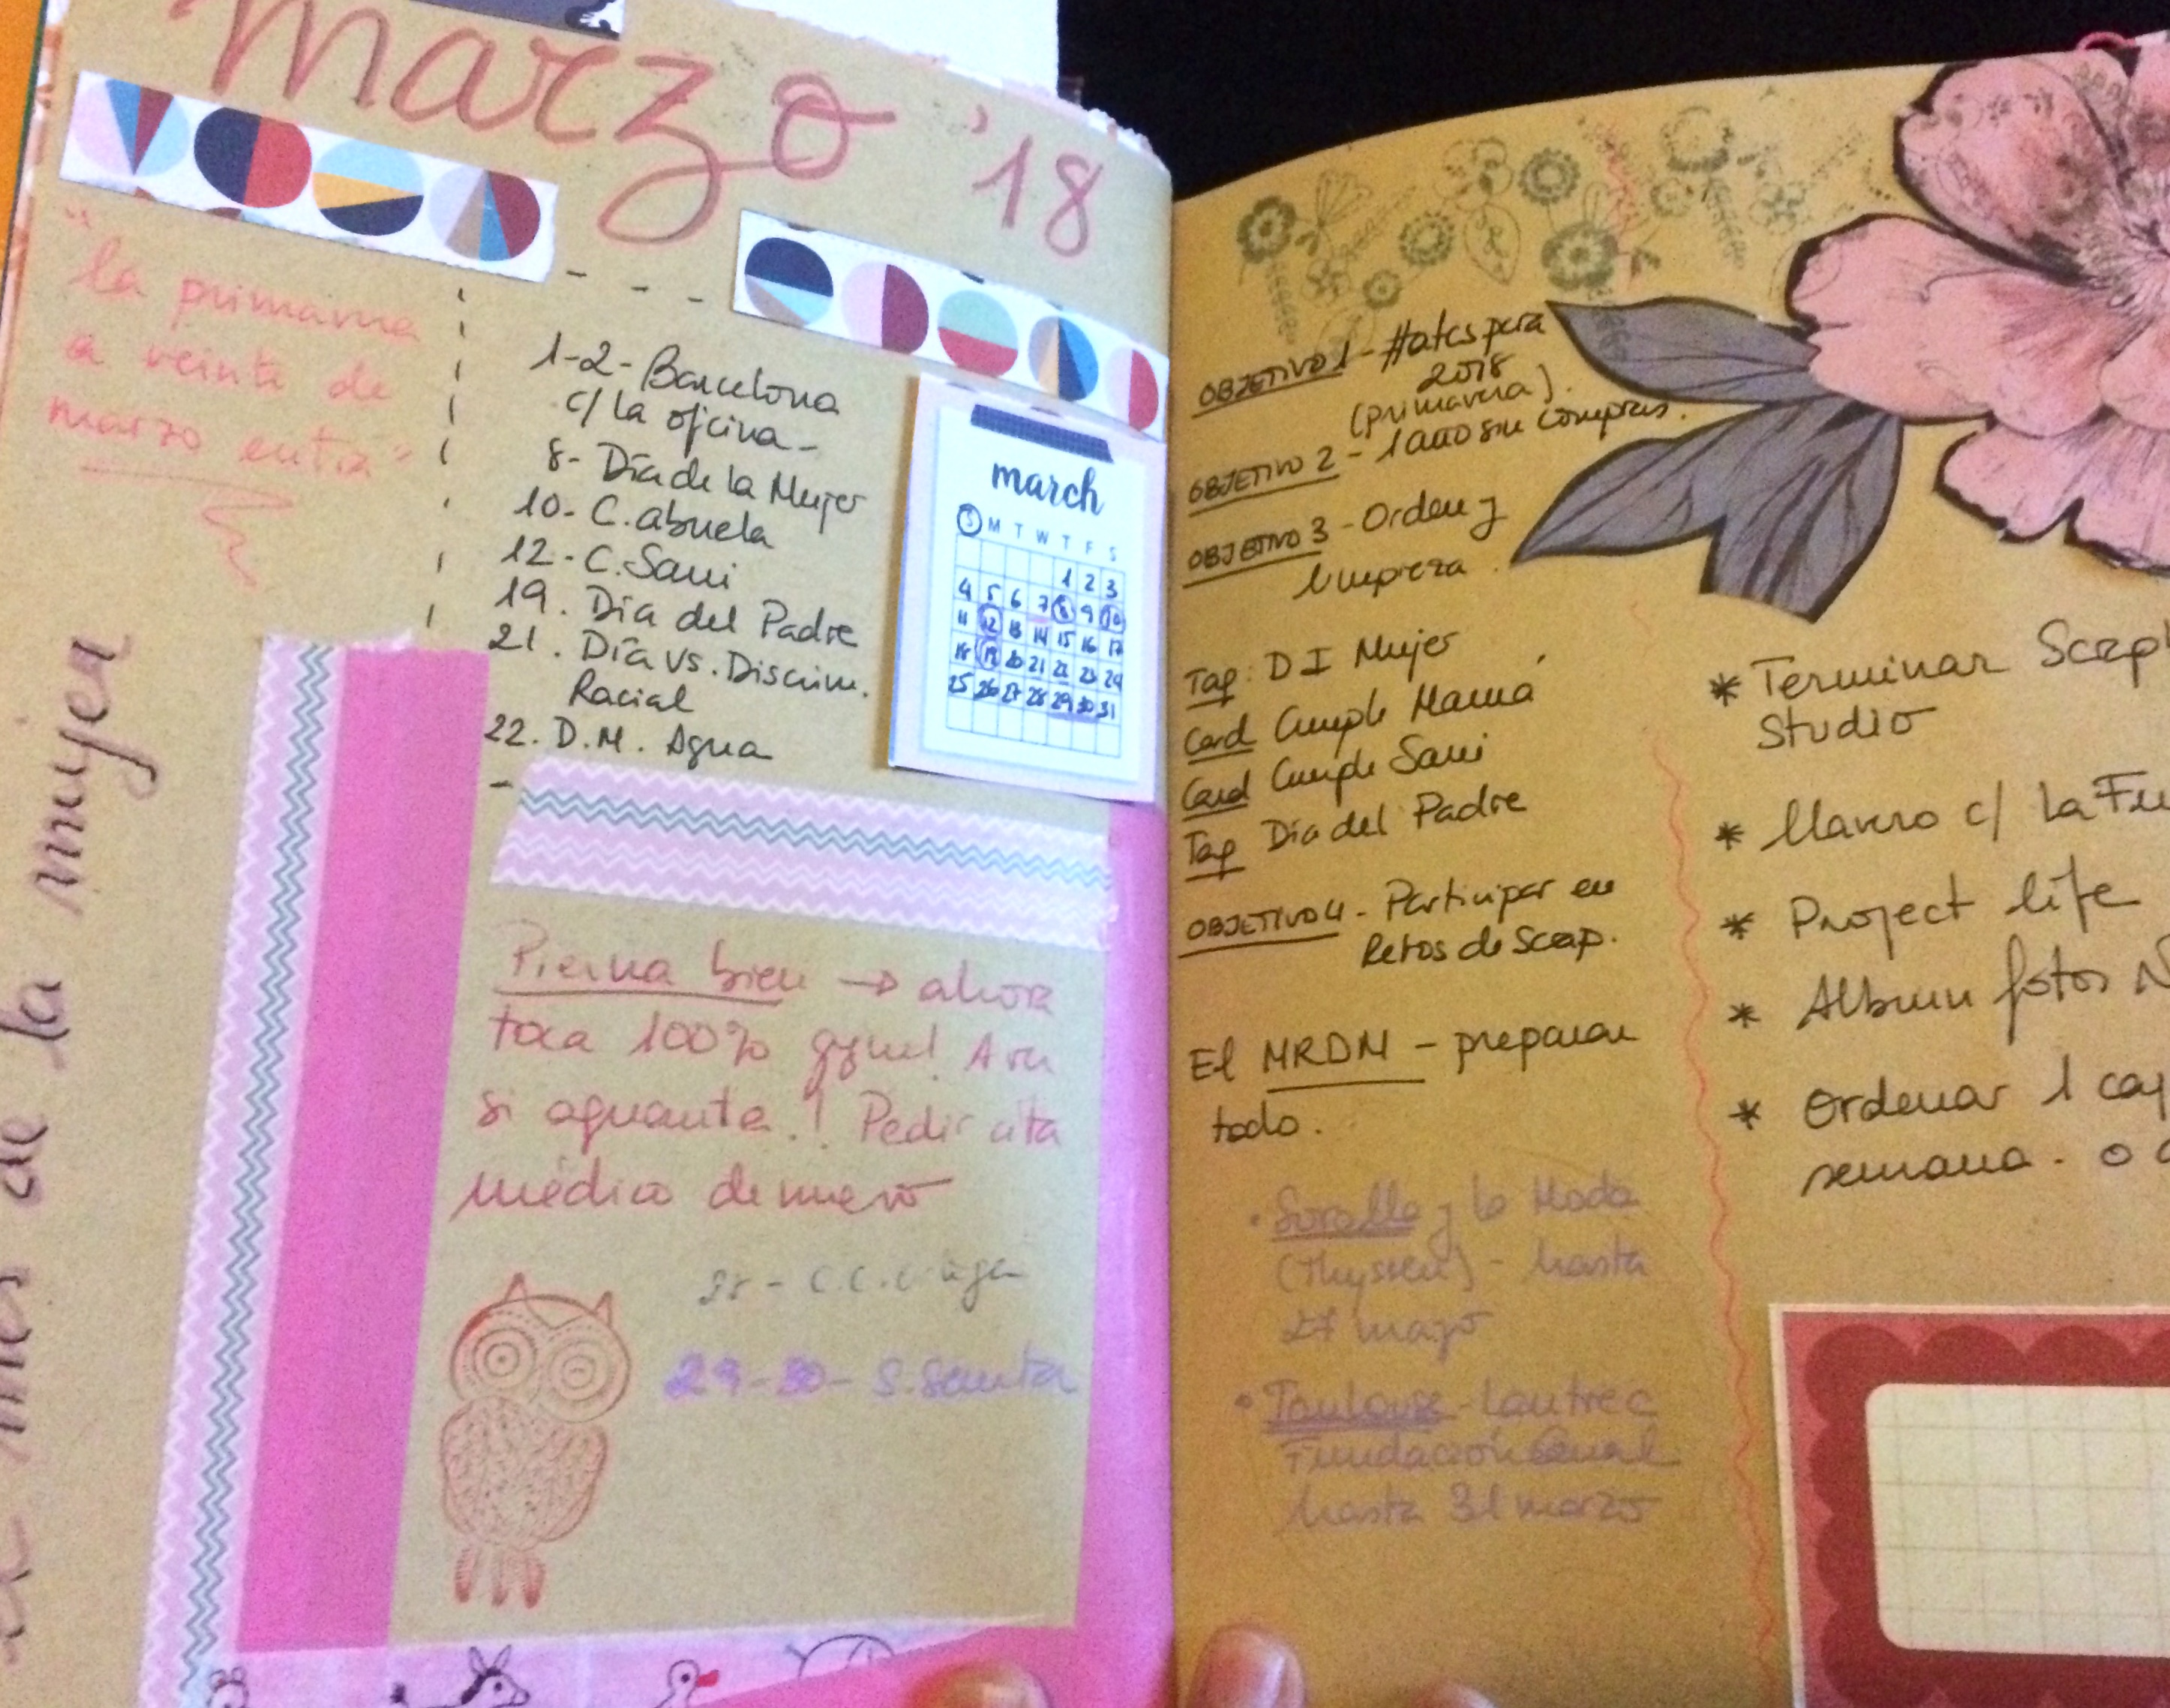 marzo '18
"la primavera
a veinte de
marzo entra"
1-2- Barcelona
c/ la oficina-
8- Día de la Mujer
10- C. abuela
12- C. Sani
19. Día del Padre
21. Día vs. Discrim.
Racial
22. D.M. Agua
-
march
S M T W T F S
1 2 3
4 5 6 7 8 9 10
11 12 13 14 15 16 17
18 19 20 21 22 23 24
25 26 27 28 29 30 31
mes de la mujer
Pierna bien → ahora
toca 100% gym! A ver
si aguanta.! Pedir cita
médico de nuevo
- C.C.
29-30- S. Santa
OBJETIVO 1 - para
2018
(primavera).
OBJETIVO 2 - 1 año sin compras.
OBJETIVO 3 - Orden y
limpieza.
Tag: D I Mujer
Card Cumple Mamá
Card Cumple Sani
Tag Día del Padre
OBJETIVO 4 - Participar en
Retos de Scrap.
El MRDM - preparar
todo.
• Sorolla y la Moda
(Thyssen) - hasta
27 mayo
• Toulouse-Lautrec
Fundación Canal
hasta 31 marzo
* Terminar
Studio
* llavero c/ La
* Project life
* Album fotos
* Ordenar 1
semana. o